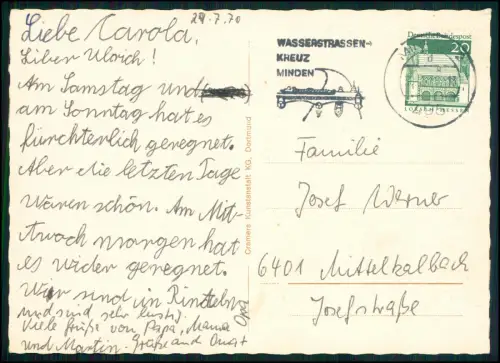 29.7.70
Liebe Carola,
Liber Ulrich!
Am Samstag und
am Sonntag hat es
fürchterlich geregnet.
Aber die letzten Tage
waren schön. Am Mit-
twoch morgen hat
es wider geregnet.
Wir sind in Rinteln
und sind sehr lustig.
Viele Grüße von Papa, Mama
und Martin. Grüße and Oma +
Opa
Cramers Kunstanstalt KG, Dortmund
WASSERSTRASSEN-
KREUZ
MINDEN
Deutsche Bundespost
20
Familie
Josef Werner
6401 Mittelkalbach
Josefstraße